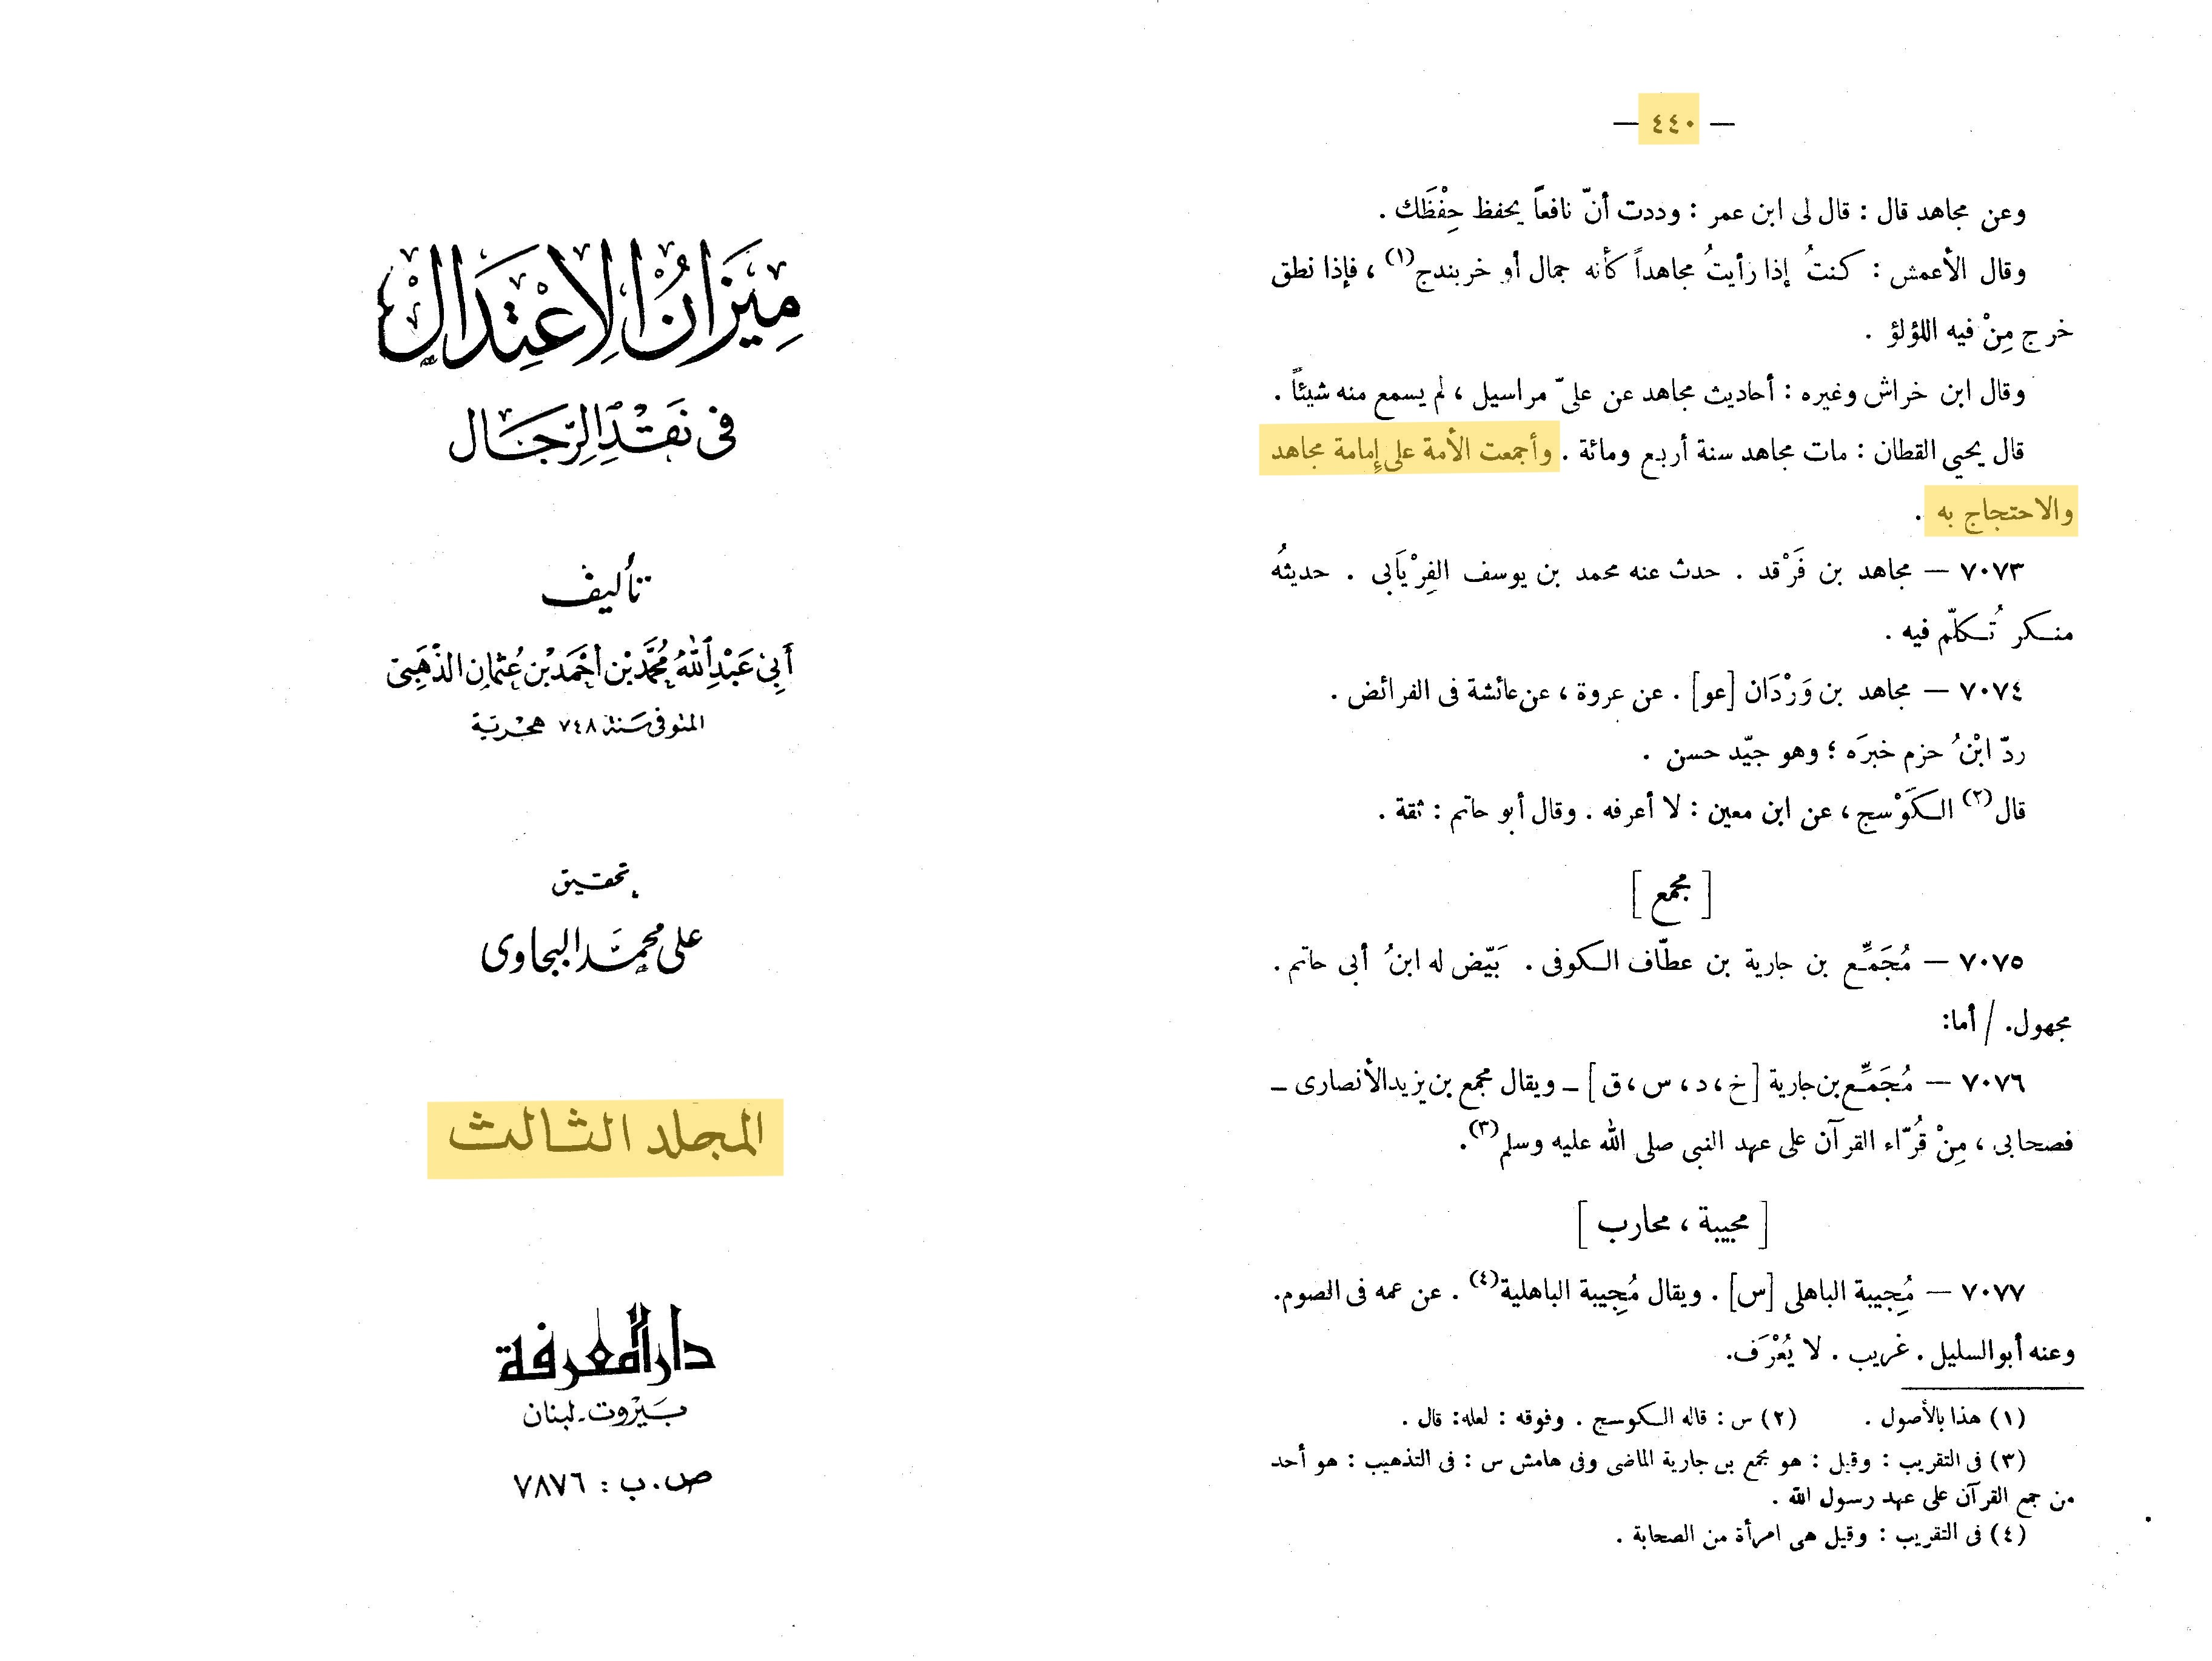 — ٤٤٠ —
وعن مجاهد قال : قال لى ابن عمر : وددت أنّ نافعاً يحفظ حِفْظَك .
وقال الأعمش : كنتُ إذا رأيتُ مجاهداً كأنه جمال أو خربندج(١) ، فإذا نطق
خرج مِنْ فيه اللؤلؤ .
وقال ابن خراش وغيره : أحاديث مجاهد عن علىّ مراسيل ، لم يسمع منه شيئاً .
قال يحيى القطان : مات مجاهد سنة أربع ومائة . وأجمعت الأمة على إمامة مجاهد
والاحتجاج به .
٧٠٧٣ — مجاهد بن فَرْقد . حدث عنه محمد بن يوسف الفِرْيَابى . حديثهُ
منكر تُكلّم فيه .
٧٠٧٤ — مجاهد بن وَرْدَان [عو] . عن عروة ، عن عائشة فى الفرائض .
ردّ ابْنُ حزم خبرَه ؛ وهو جيّد حسن .
قال(٢) الكَوْسج ، عن ابن معين : لا أعرفه . وقال أبو حاتم : ثقة .
[ مجمع ]
٧٠٧٥ — مُجَمِّع بن جارية بن عطّاف الكوفى . بَيّض له ابنُ أبى حاتم .
مجهول. / أما:
٧٠٧٦ — مُجَمِّع بن جارية [خ ، د ، س ، ق] ـ ويقال مجمع بن يزيد الأنصارى ـ
فصحابى ، مِنْ قُرّاء القرآن على عهد النبى صلى الله عليه وسلم(٣).
[ مجيبة ، محارب ]
٧٠٧٧ — مُجِيبة الباهلى [س] . ويقال مُجِيبة الباهلية(٤) . عن عمه فى الصوم.
وعنه أبو السليل . غريب . لا يُعْرَف.
(١) هذا بالأصول . (٢) س : قاله الكوسج . وفوقه : لعله: قال .
(٣) فى التقريب : وقيل : هو مجمع بن جارية الماضى وفى هامش س : فى التذهيب : هو أحد
من جمع القرآن على عهد رسول الله .
(٤) فى التقريب : وقيل هى امرأة من الصحابة .
مِيزَانُ الِاعْتِدَال
فى نَقْدِ الرِّجَال
تأليف
أَبِى عَبْدِ اللهِ مُحَمَّد بْن أَحْمَد بْن عُثْمَان الذَّهَبِى
المتوفى سَنة ٧٤٨ هجرية
تحقيق
على محمَّد البجاوى
المجلد الثالث
دار المعرفة
بَيْروت - لبنان
ص.ب : ٧٨٧٦